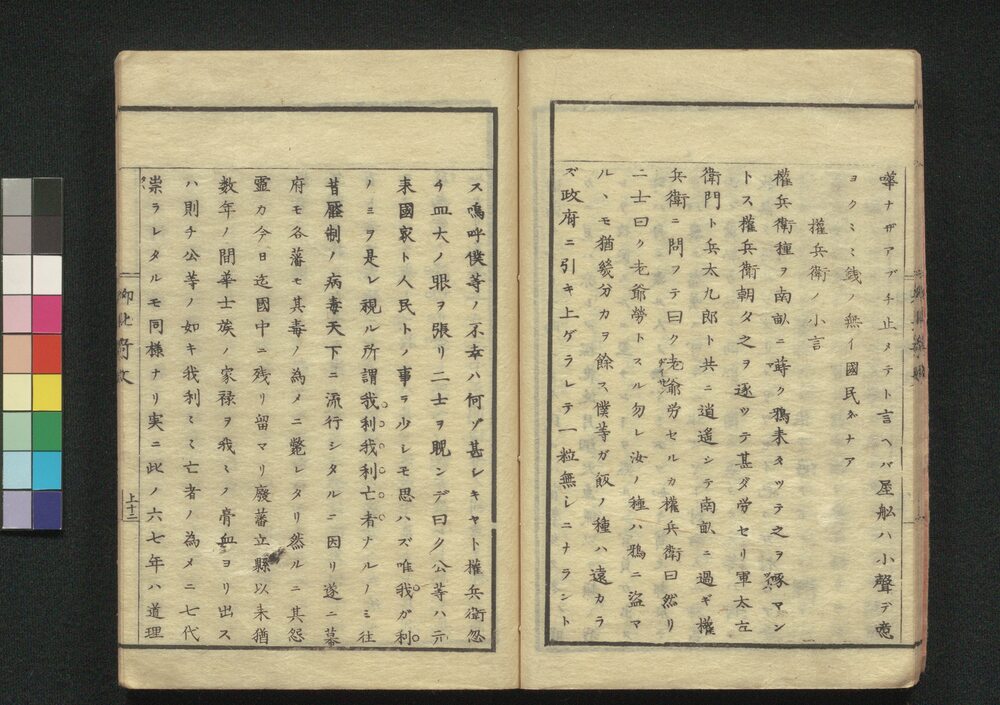 嘩ナザアブチ止メテト言ヘバ屋舩ハ小聲デ
ヨクミミ銭ノ無イ國民ダナア
權兵衛ノ小言
權兵衛種ヲ南畝ニ蒔ク鴉来タツテ之ヲ啄マン
トス權兵衛朝夕之ヲ逐ツテ甚ダ労セリ軍太左
衛門ト兵太九郎ト共ニ逍遥シテ南畝ニ過ギ權
兵衛ニ問フテ曰ク老爺労セルカ權兵衛曰然リ
二士曰ク老爺勞トスル勿レ汝ノ種ハ鴉ニ盗マ
ルヽモ猶幾分カヲ餘ス僕等ガ飯ノ種ハ遠カラ
ズ政府ニ引キ上ゲラレテ一粒無シニナラント
ス嗚呼僕等ノ不幸ハ何ゾ甚シキヤト權兵衛忽
チ皿大ノ眼ヲ張リ二士ヲ睨ンデ曰ク公等ハ元
来國家ト人民トノ事ヲ少シモ思ハズ唯我ガ利
ノミヲ是レ視ル所謂我利我利亡者ナルノミ往
昔壓制ノ病毒天下ニ流行シタルニ因リ遂ニ幕
府モ各藩モ其毒ノ為メニ斃レタリ然ルニ其怨
靈カ今日迄國中ニ残リ留マリ廢藩立縣以来猶
数年ノ間華士族ノ家禄ヲ我ミノ膏血ヨリ出ス
ハ則チ公等ノ如キ我利ミミ亡者ノ為メニ七代
祟ラレタルモ同様ナリ実ニ此ノ六七年ハ道理
上十二